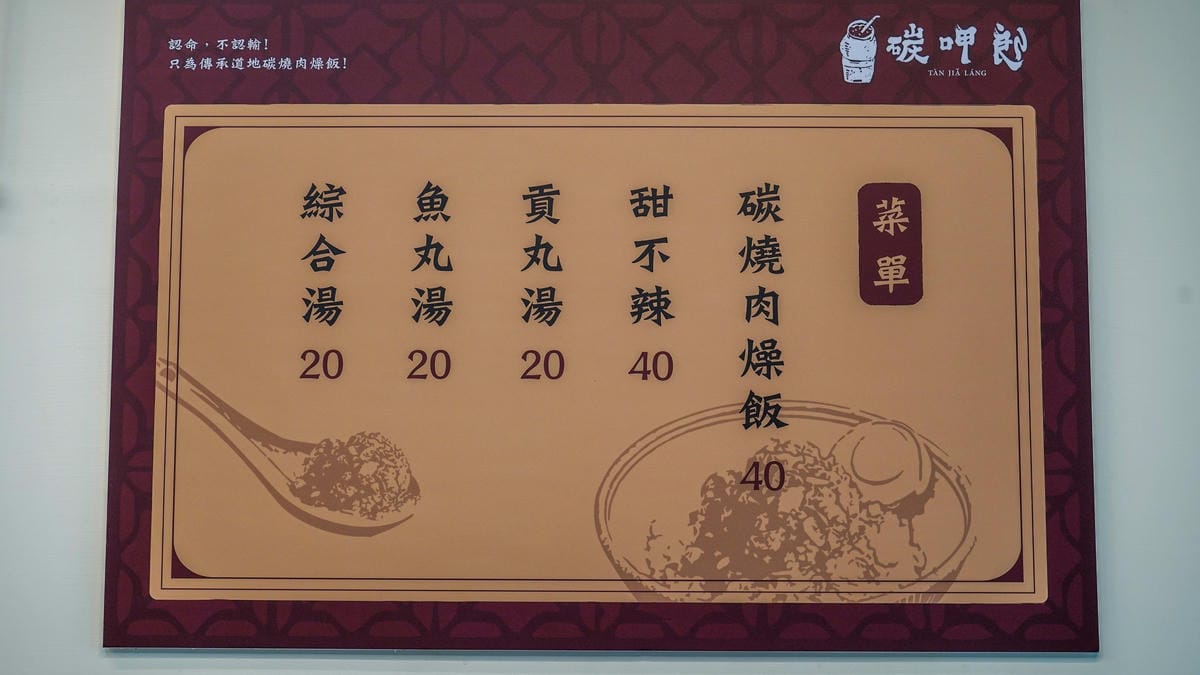 認命，不認輸！
只為傳承道地碳燒肉燥飯！
碳呷郎
TÀN JIĂ LÁNG
菜單
碳燒肉燥飯 40
甜不辣 40
貢丸湯 20
魚丸湯 20
綜合湯 20